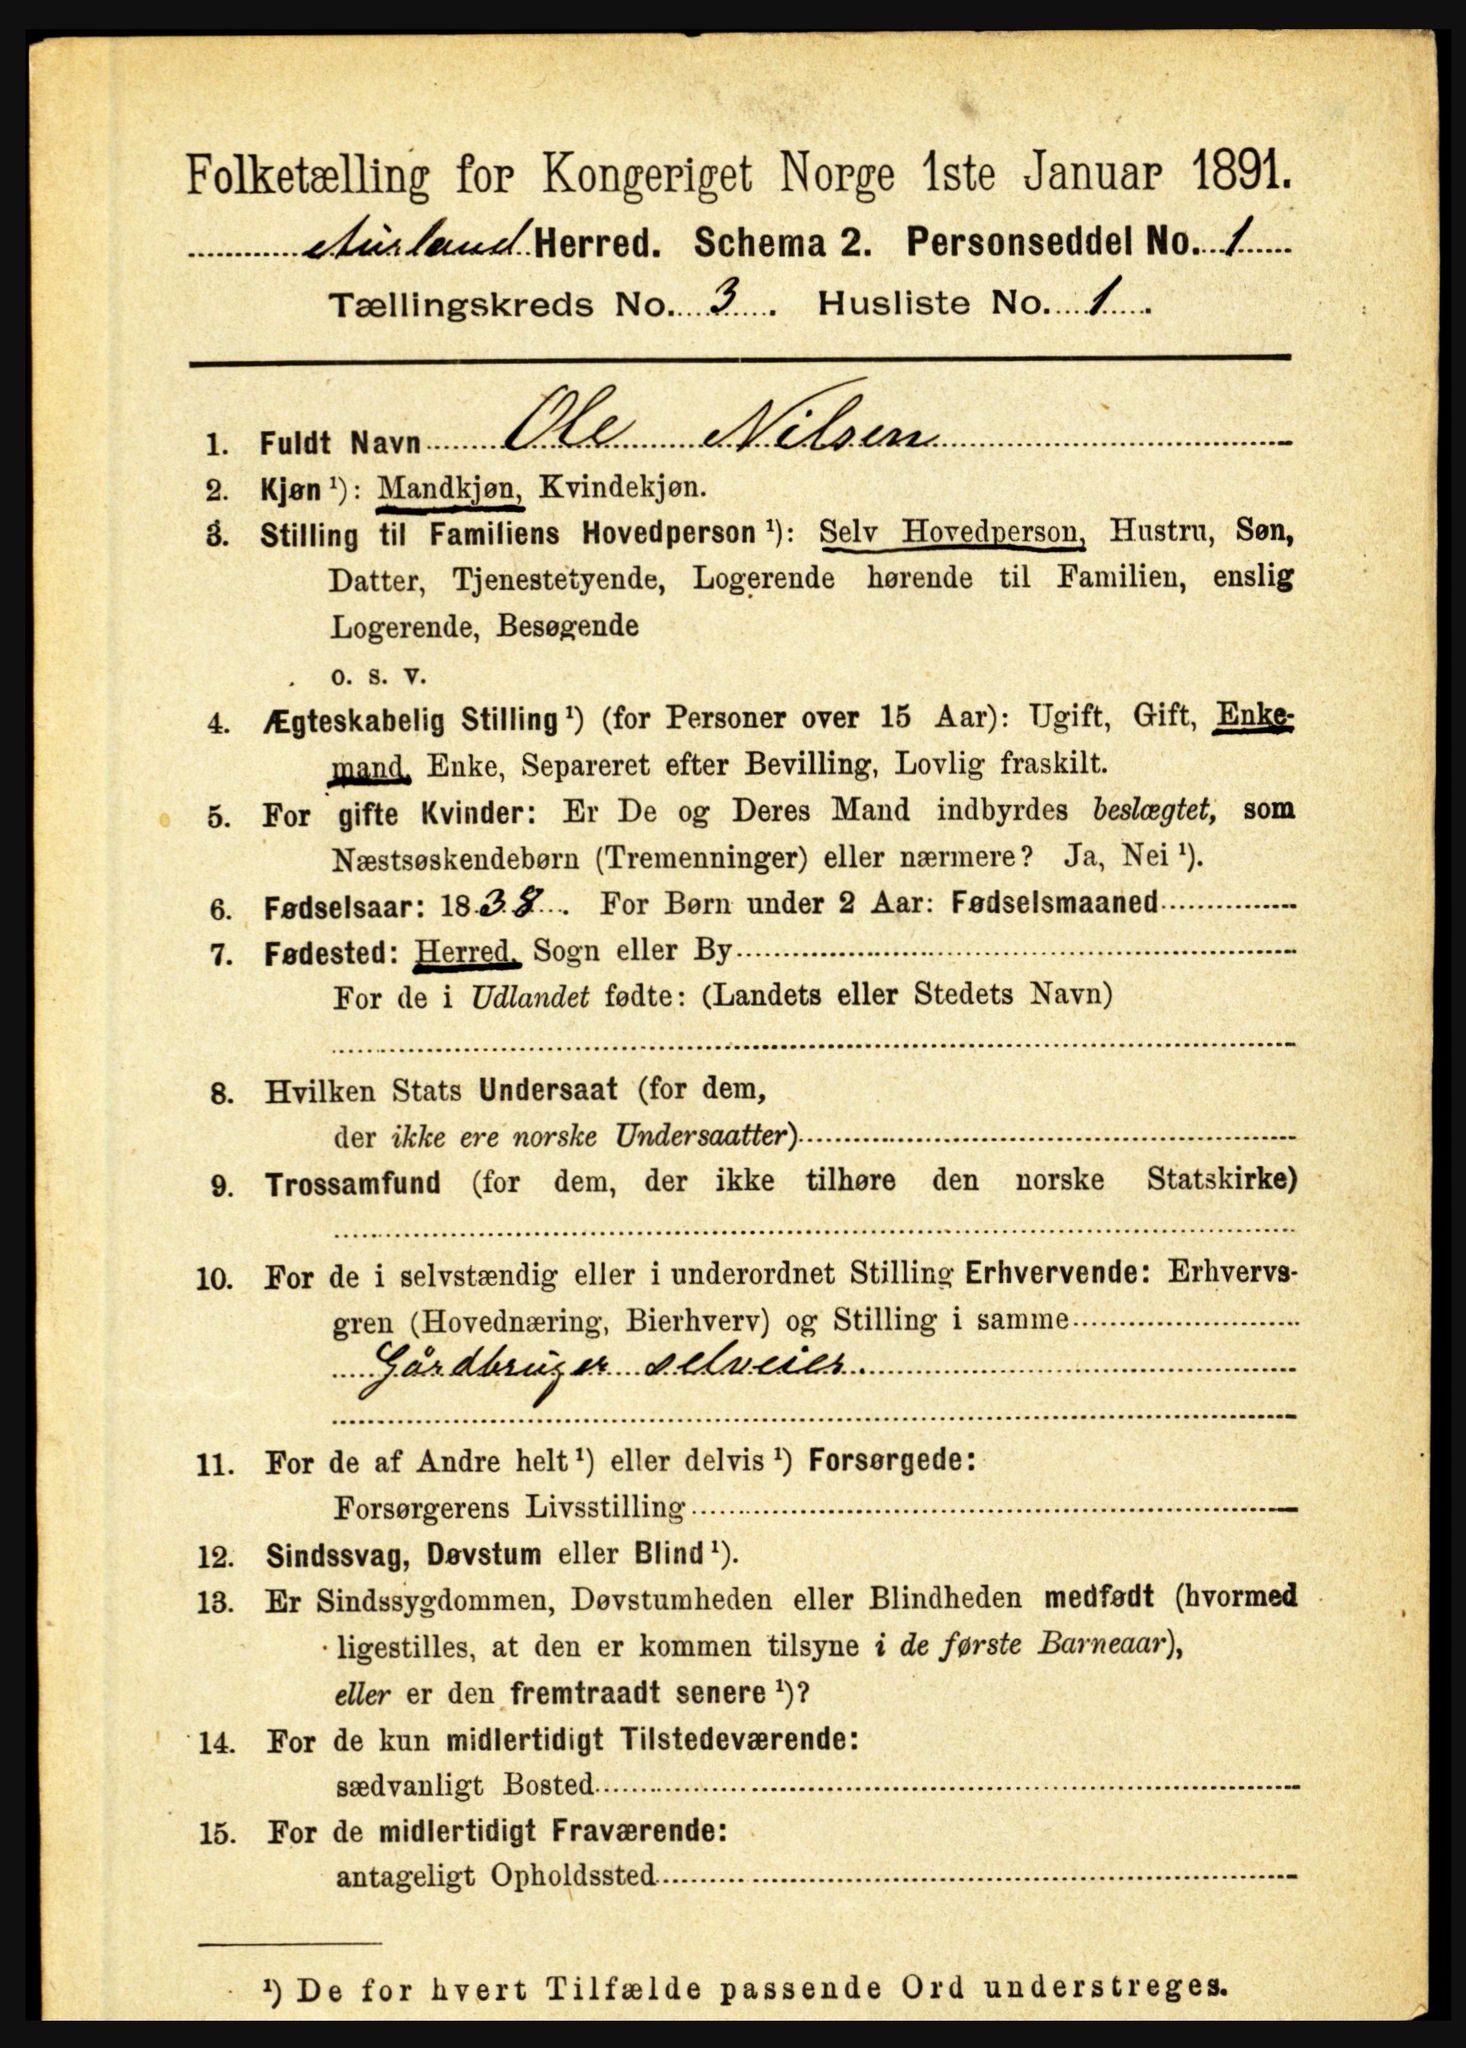 Folketælling for Kongeriget Norge 1ste Januar 1891.
Aurland Herred. Schema 2. Personseddel No. 1
Tællingskreds No. 3. Husliste No. 1.
1. Fuldt Navn Ole Nilsen
2. Kjøn ¹): Mandkjøn, Kvindekjøn.
3. Stilling til Familiens Hovedperson ¹): Selv Hovedperson, Hustru, Søn,
Datter, Tjenestetyende, Logerende hørende til Familien, enslig
Logerende, Besøgende
o. s. v.
4. Ægteskabelig Stilling ¹) (for Personer over 15 Aar): Ugift, Gift, Enke-
mand, Enke, Separeret efter Bevilling, Lovlig fraskilt.
5. For gifte Kvinder: Er De og Deres Mand indbyrdes beslægtet, som
Næstsøskendebørn (Tremenninger) eller nærmere? Ja, Nei ¹).
6. Fødselsaar: 1838. For Børn under 2 Aar: Fødselsmaaned
7. Fødested: Herred, Sogn eller By
For de i Udlandet fødte: (Landets eller Stedets Navn)
8. Hvilken Stats Undersaat (for dem,
der ikke ere norske Undersaatter)
9. Trossamfund (for dem, der ikke tilhøre den norske Statskirke)
10. For de i selvstændig eller i underordnet Stilling Erhvervende: Erhvervs-
gren (Hovednæring, Bierhverv) og Stilling i samme
Gårdbruger selveier.
11. For de af Andre helt ¹) eller delvis ¹) Forsørgede:
Forsørgerens Livsstilling
12. Sindssvag, Døvstum eller Blind ¹).
13. Er Sindssygdommen, Døvstumheden eller Blindheden medfødt (hvormed
ligestilles, at den er kommen tilsyne i de første Barneaar),
eller er den fremtraadt senere ¹)?
14. For de kun midlertidigt Tilstedeværende:
sædvanligt Bosted
15. For de midlertidigt Fraværende:
antageligt Opholdssted
¹) De for hvert Tilfælde passende Ord understreges.